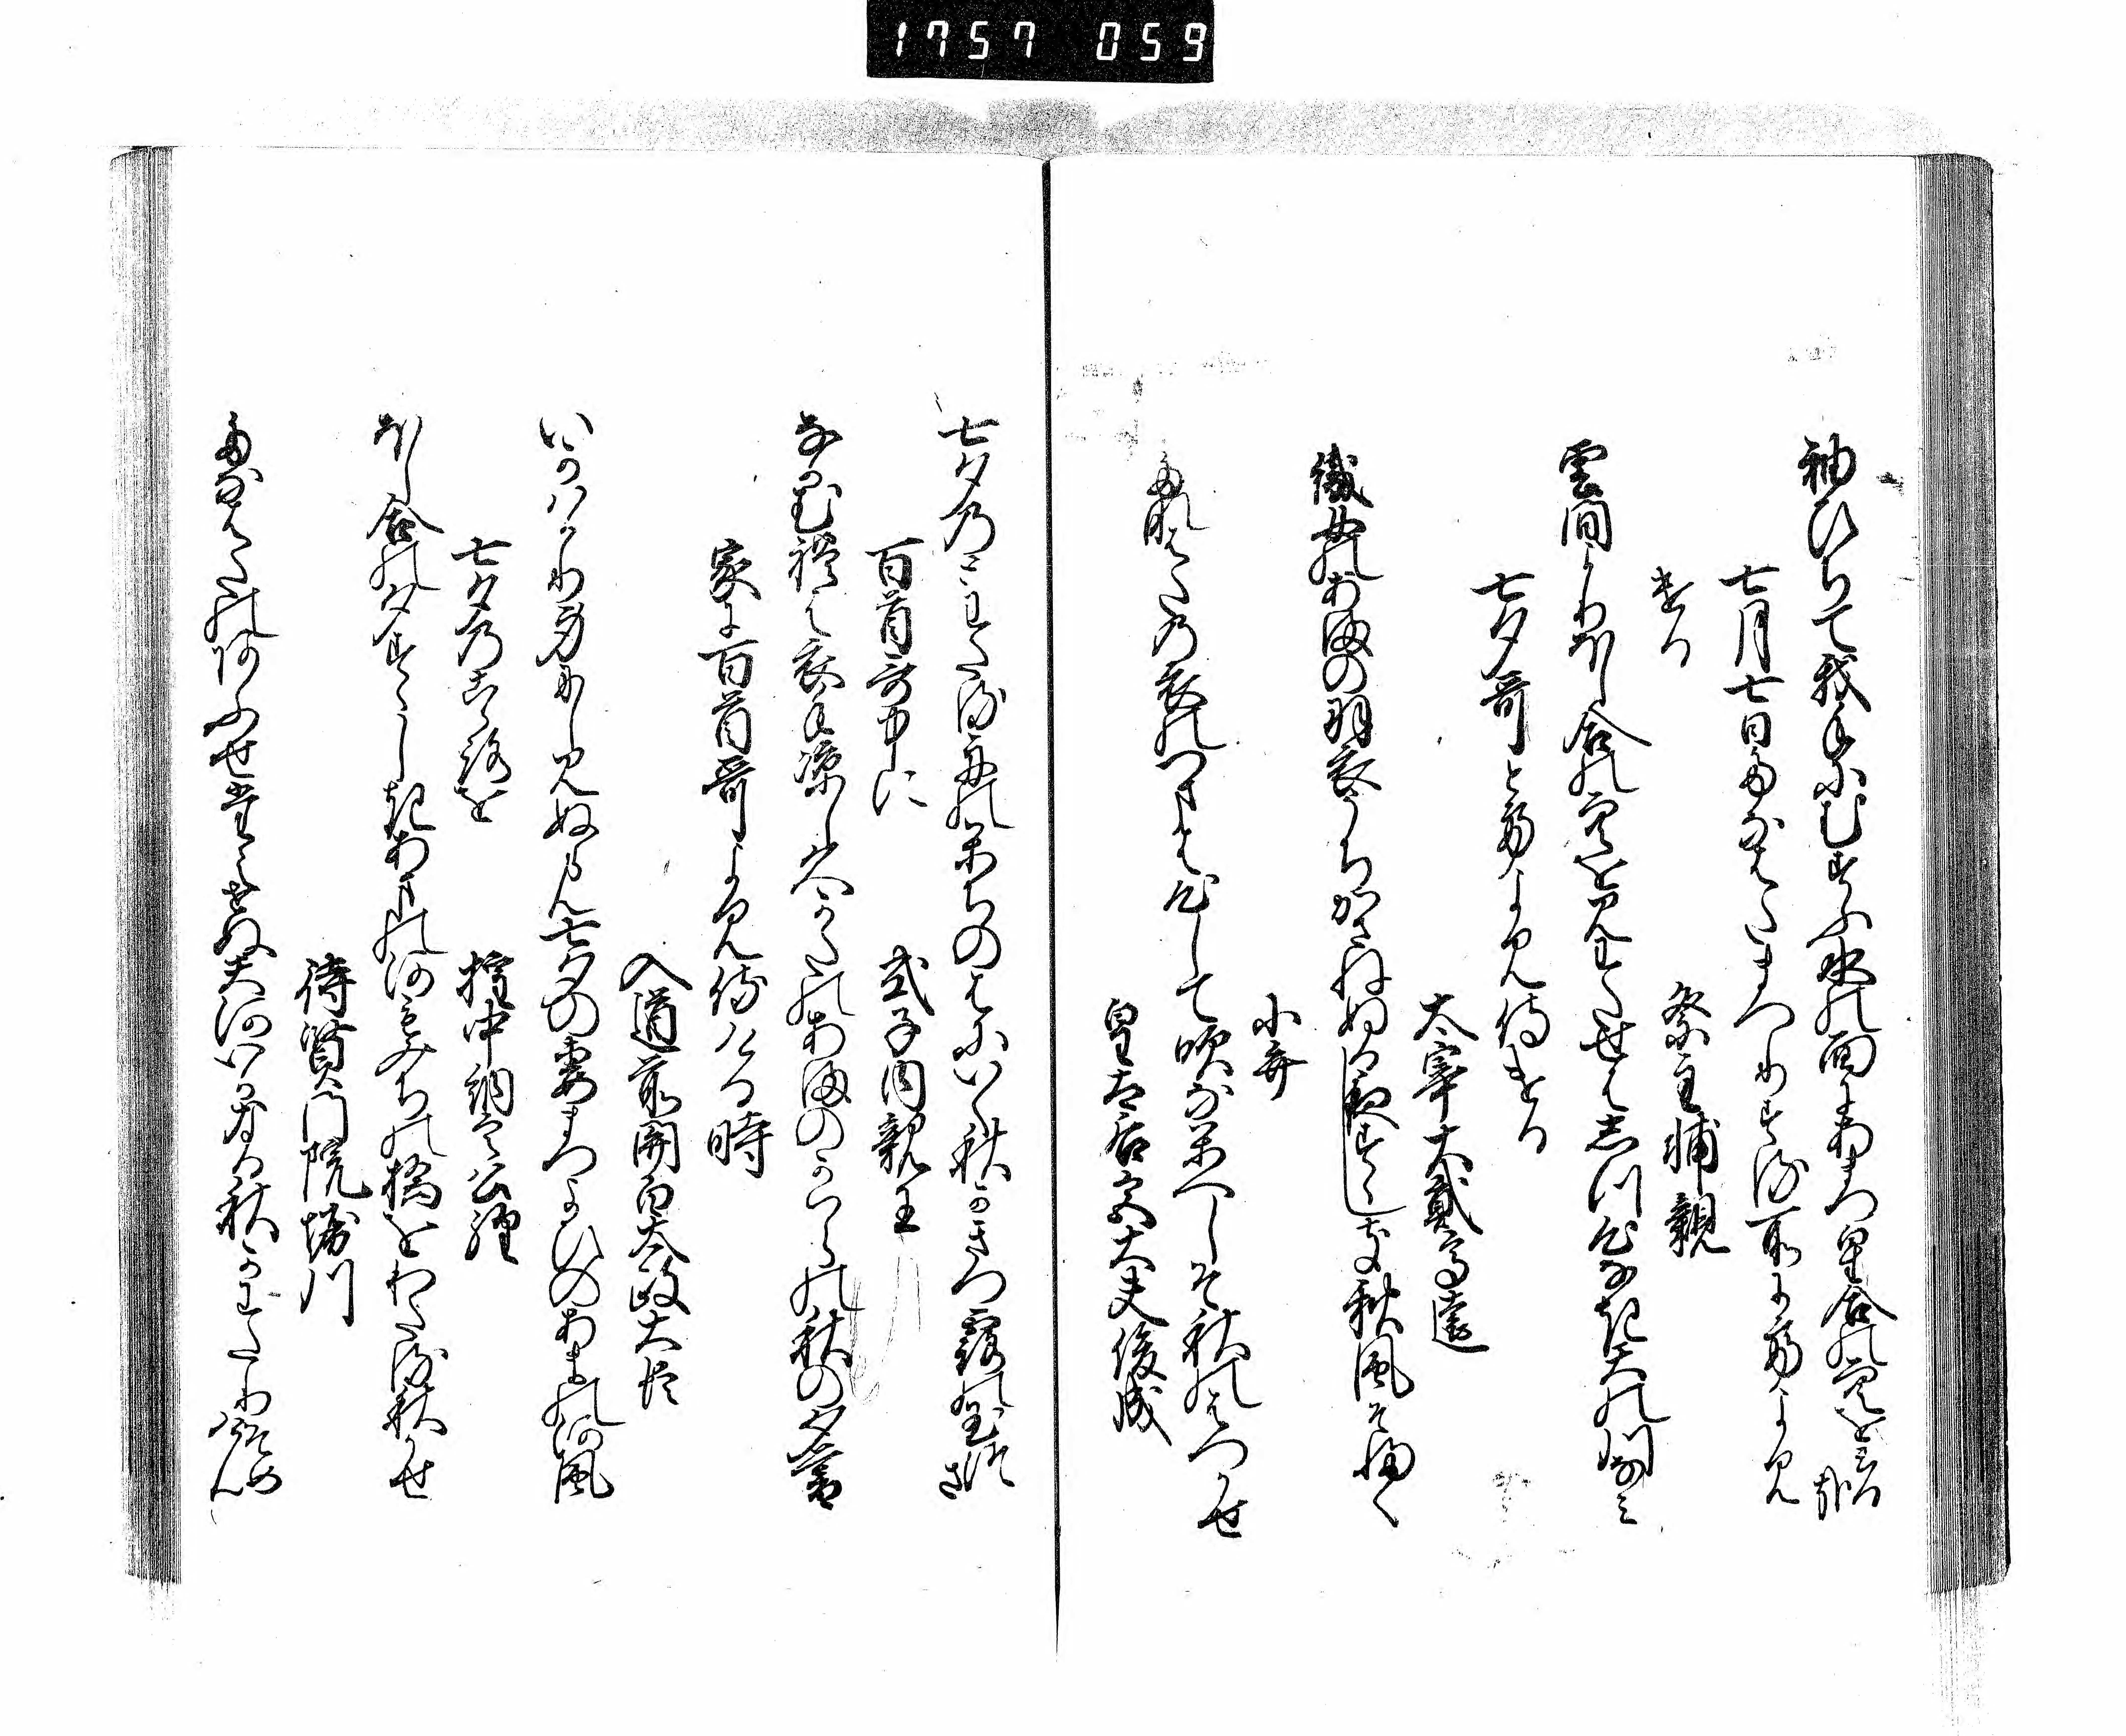 1757 059
袖ひちて我手にむすふ水の面にあまつ星合の空をみる哉
七月七日たなはたまつりする所にてよみ
ける
祭主輔親
雲間よりほし合の空を見わたせはしつ心なき天の川なみ
七夕哥とてよみ侍ける
大宰大貳高遠
織女のあまの羽衣うちかさねぬる夜すゝしき秋風そ吹く
小弁
たなはたの衣のつまは心して吹なかへしそ秋のはつかせ
皇太后宮大夫俊成
七夕のとわたる舟のかちのはにいく秋かきつ露の玉つさ
百首哥中に
式子内親王
なかむれは衣手涼し久かたのあまのかはらの秋の夕暮
家に百首哥よみ侍ける時
入道前関白太政大臣
いかはかり身にしみぬらん七夕の妻まつよひのあまの河風
七夕のこゝろを
権中納言公経
ほし合の夕すゝしきあまの河もみちの橋をわたる秋かせ
待賢門院堀川
たなはたのあふせたえせぬ天河いかなる秋かわたりそめけん